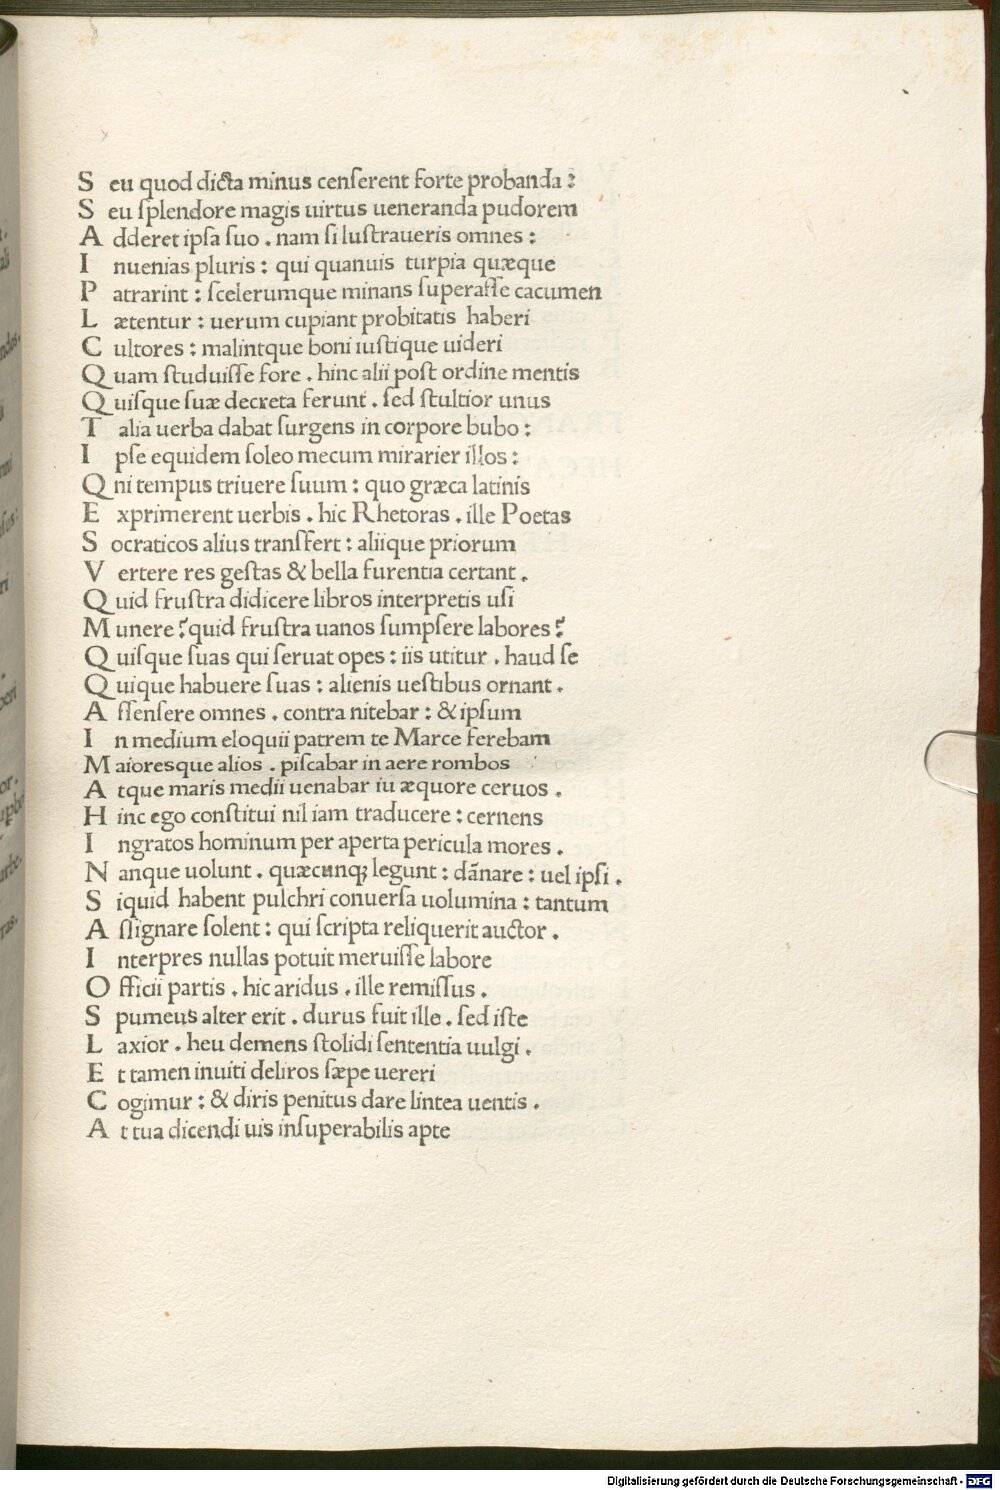 S eu quod dicta minus cenſerent forte probanda :
S eu ſplendore magis uirtus ueneranda pudorem
A dderet ipſa ſuo . nam ſi luſtraueris omnes :
I nuenias pluris : qui quanuis turpia quæque
P atrarint : ſcelerumque minans ſuperaſſe cacumen
L ætentur : uerum cupiant probitatis haberi
C ultores : malintque boni iuſtique uideri
Q uam ſtuduiſſe fore . hinc alii poſt ordine mentis
Q uiſque ſuæ decreta ferunt . ſed ſtultior unus
T alia uerba dabat ſurgens in corpore bubo :
I pſe equidem ſoleo mecum mirarier illos :
Q ni tempus triuere ſuum : quo græca latinis
E xprimerent uerbis . hic Rhetoras . ille Poetas
S ocraticos alius tranſfert : aliique priorum
V ertere res geſtas & bella furentia certant .
Q uid fruſtra didicere libros interpretis uſi
M unere ? quid fruſtra uanos ſumpſere labores ?
Q uiſque ſuas qui ſeruat opes : iis utitur . haud ſe
Q uique habuere ſuas : alienis ueſtibus ornant .
A ſſenſere omnes . contra nitebar : & ipſum
I n medium eloquii patrem te Marce ferebam
M aioresque alios . piſcabar in aere rombos
A tque maris medii uenabar iu æquore ceruos .
H inc ego conſtitui nil iam traducere : cernens
I ngratos hominum per aperta pericula mores .
N anque uolunt . quæcunqꝫ legunt : dānare : uel ipſi .
S iquid habent pulchri conuerſa uolumina : tantum
A ſſignare ſolent : qui ſcripta reliquerit auctor .
I nterpres nullas potuit meruiſſe labore
O fficii partis . hic aridus . ille remiſſus .
S pumeus alter erit . durus fuit ille . ſed iſte
L axior . heu demens ſtolidi ſententia uulgi .
E t tamen inuiti deliros ſæpe uereri
C ogimur : & diris penitus dare lintea uentis .
A t tua dicendi uis inſuperabilis apte
Digitalisierung gefördert durch die Deutsche Forschungsgemeinschaft - DFG